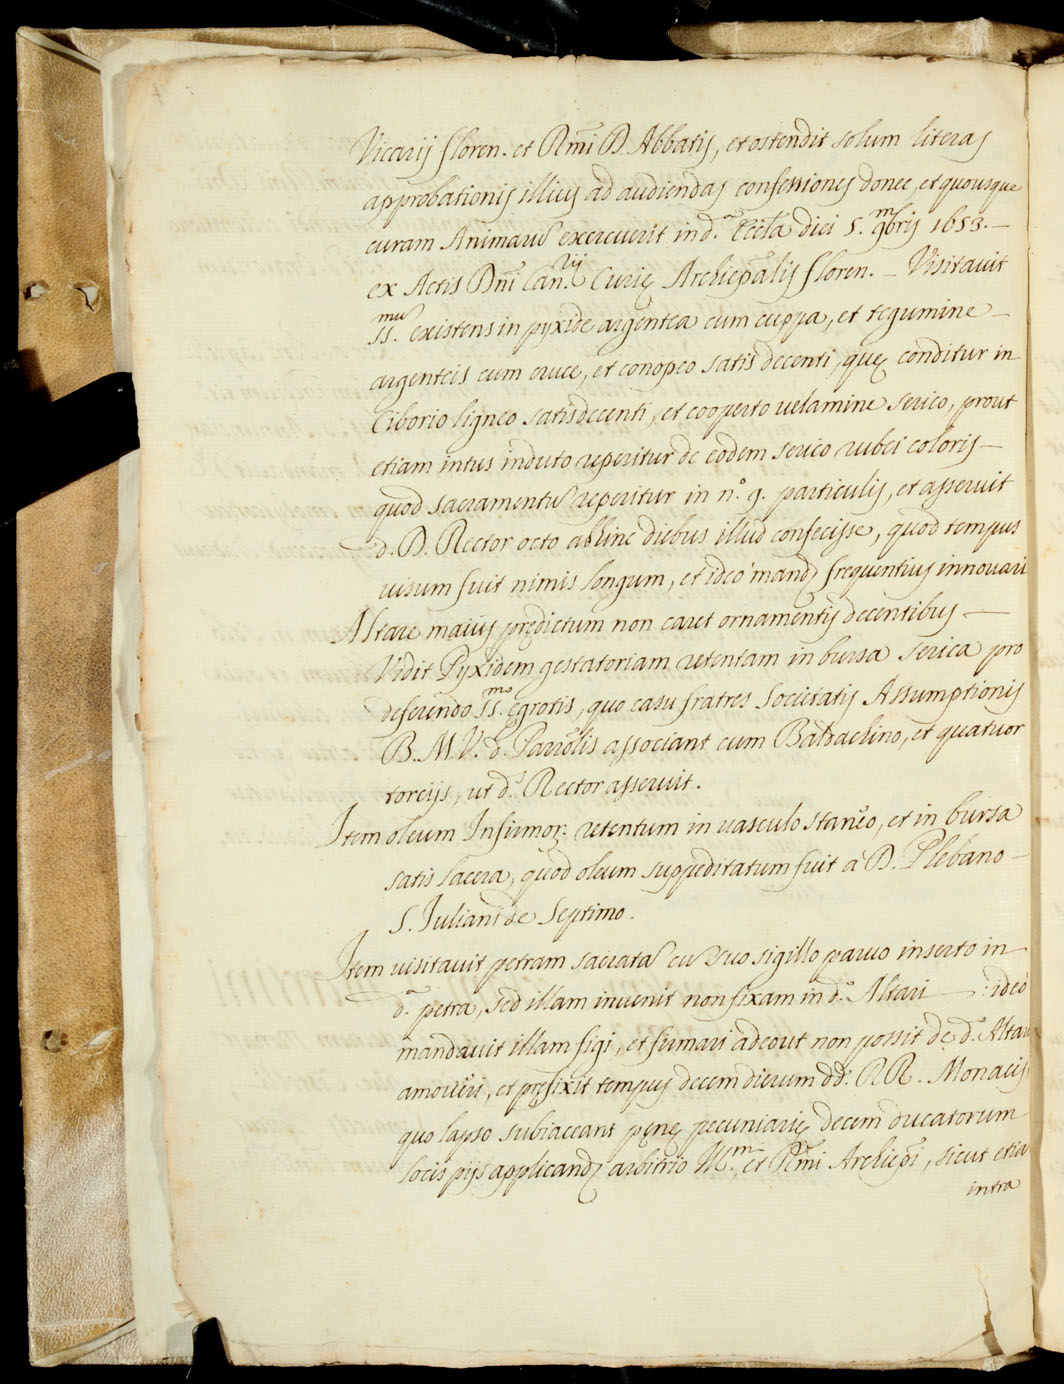 Vicarij Floren. et R.mi D. Abbatis, et ostendit solum literas
approbationis illius ad audiendas confessiones donec, et quousque
curam Animarũ exercuerit in d.ª Eccl̃a diei 5. 9mbris 1653. —
ex Actis Dn̄i Can.rij Curię Archiep̄alis Floren. — Visitavit
SS.mũ existens in pyxide argentea cum cuppa, et tegumine —
argenteis cum cruce, et conopeo satis decenti, quę conditur in
Ciborio ligneo satis decenti, et cooperto velamine serico, prout
etiam intus induto reperitur de eodem serico rubei coloris —
quod sacramentũ reperitur in n.º 9. particulis, et asseruit
d. D. Rector octo abhinc diebus illud confecisse, quod tempus
visum fuit nimis longum, et ideo mand. frequentius innovari
Altare maius prędictum non caret ornamentis decentibus —
Vidit Pyxidem gestatoriam retentam in bursa serica pro
deferendo SS.mo ęgrotis, quo casu fratres Societatis Assumptionis
B. M. V. d. Parr̃olis associant cum Baldachino, et quatuor
torcijs, ut d.s Rector asseruit.
Item oleum Infirmor: retentum in vasculo stan̄eo, et in bursa
satis lacera, quod oleum suppeditatum fuit à D. Plebano —
S. Iuliani de Septimo.
Item visitavit petram sacratã cũ suo sigillo parvo inserto in
d.ª petra, sed illam invenit non fixam in d.º Altari — : ideò
mandavit illam figi, et firmari adeout non possit de d.º Altari
amoveri, et pręfixit tempus decem dierum dd: RR. Monacis
quo lapso subiaceant pęnę pecuniarię decem ducatorum
locis pijs applicand. arbitrio Ill.mi, et R.mi Archiep̄i, sicut etiã
intra